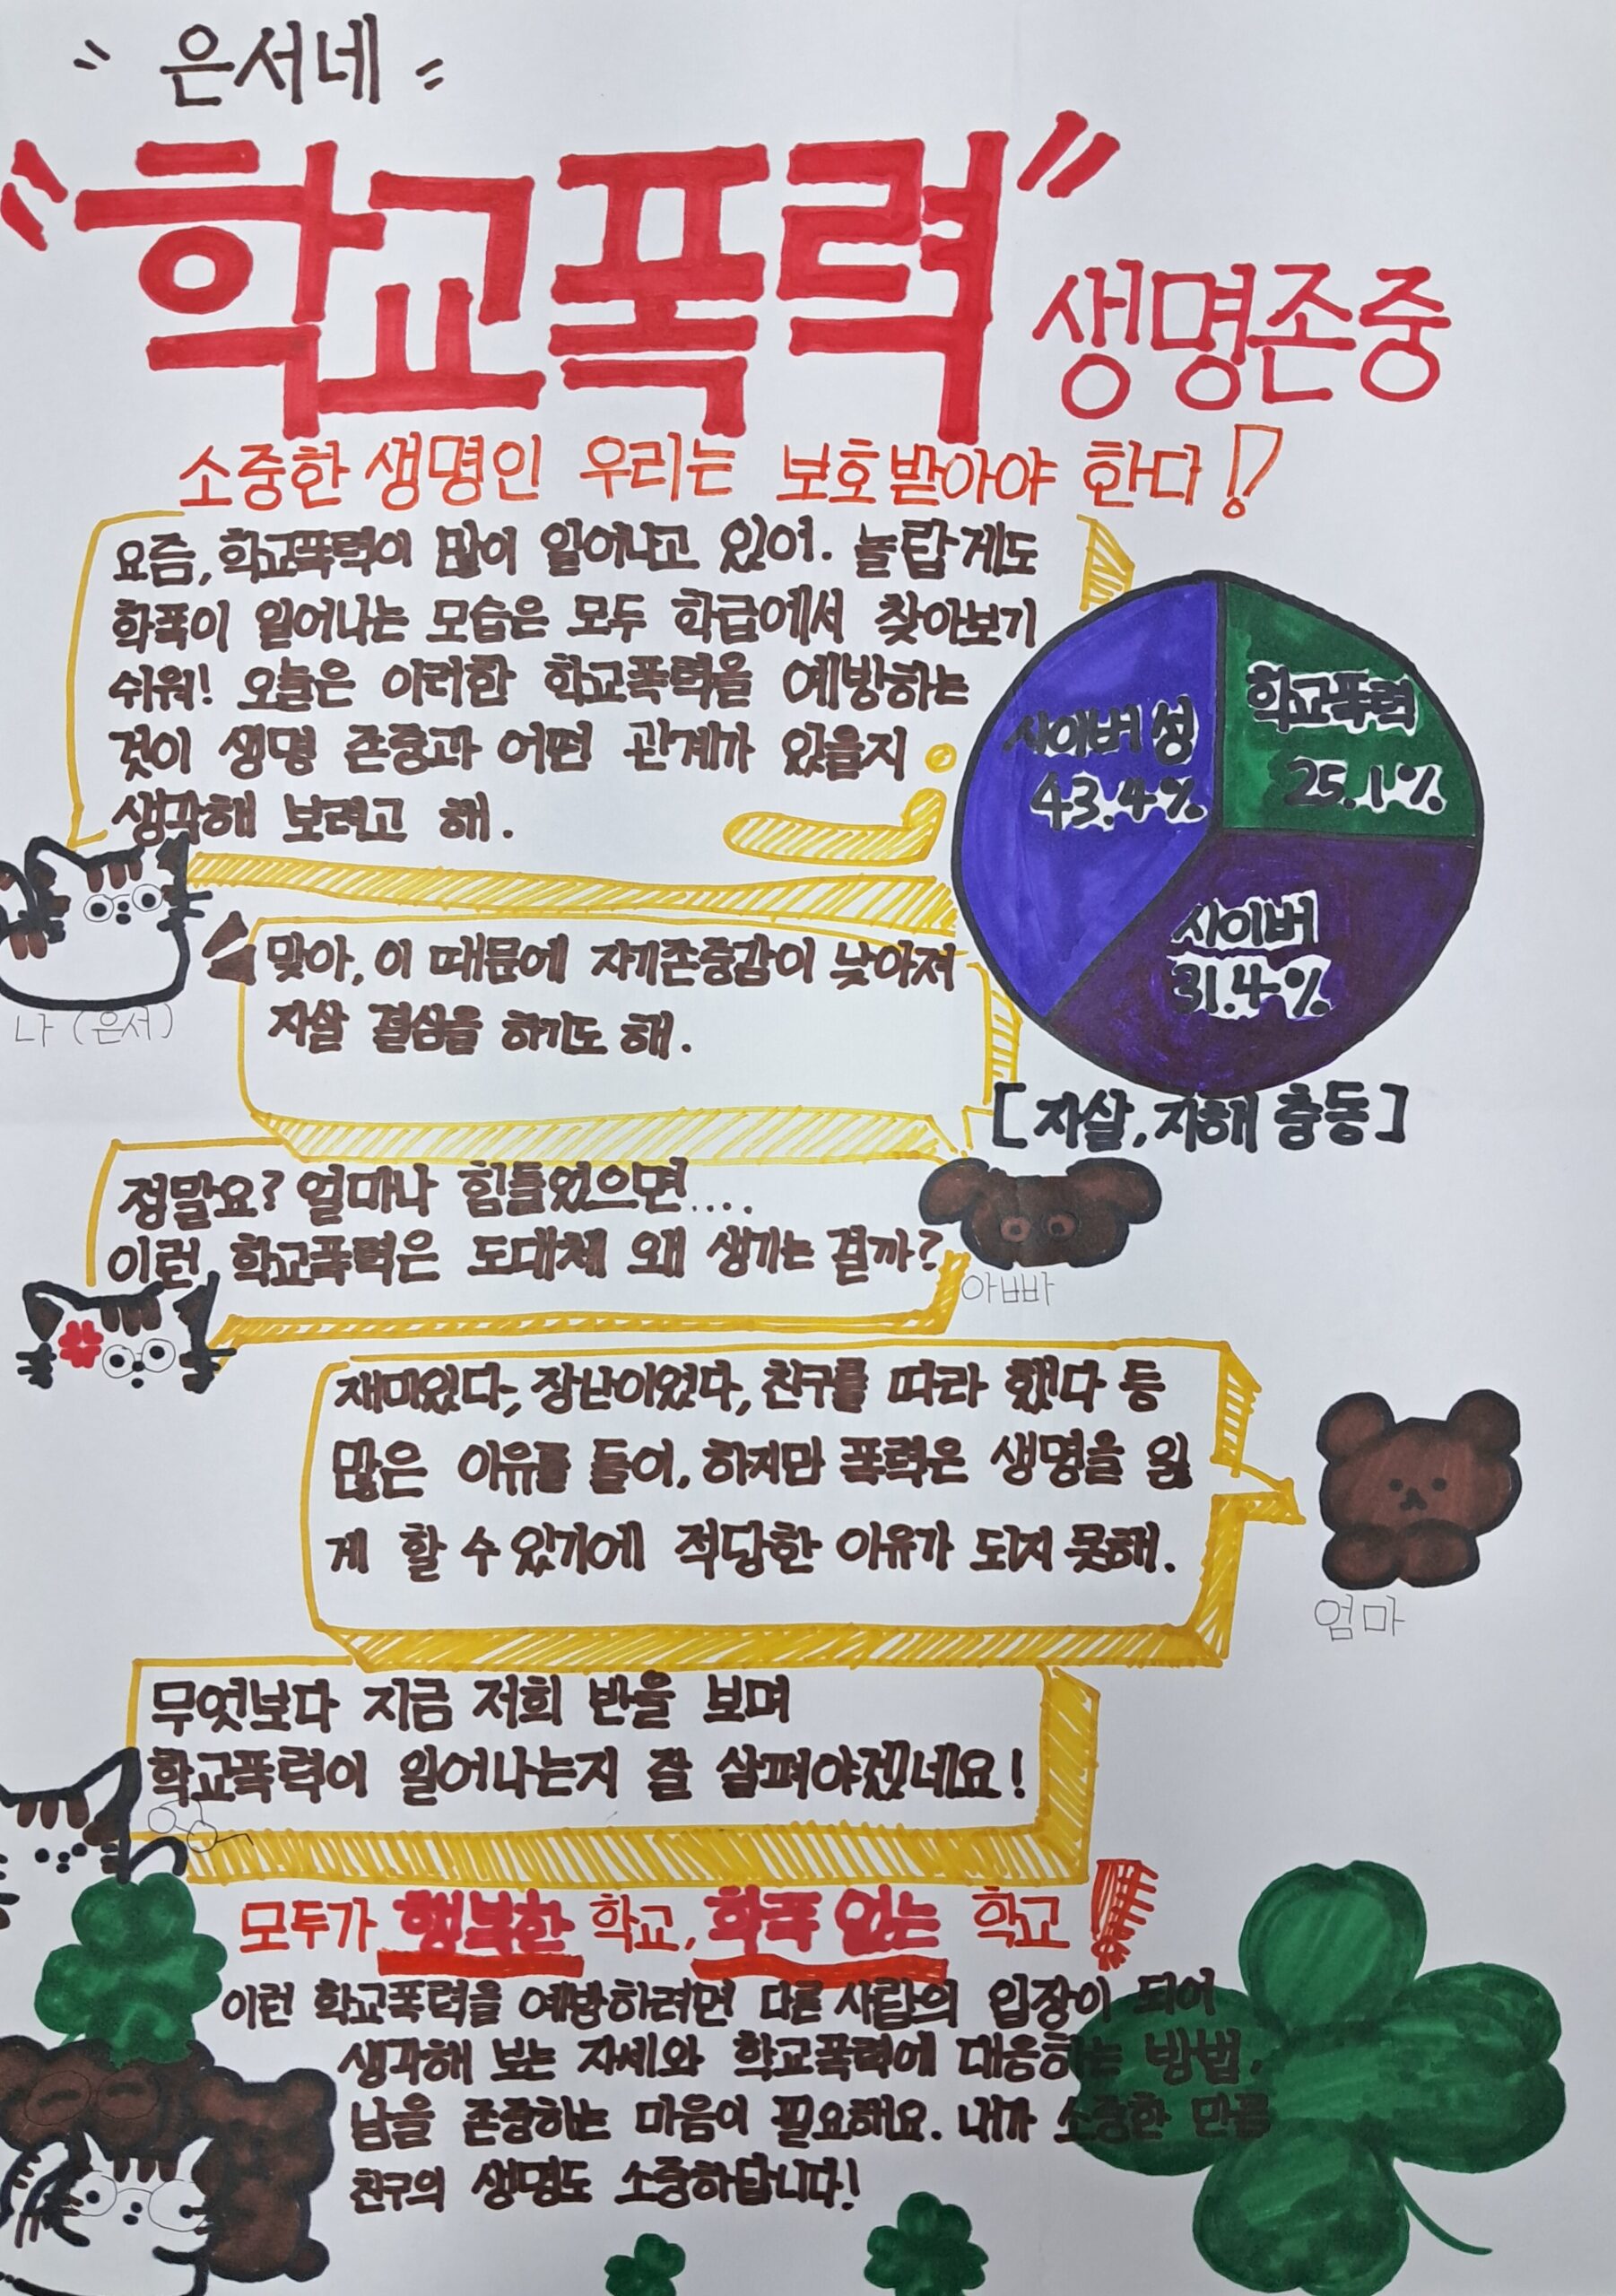 은서네
"학교폭력" 생명존중
소중한 생명인 우리는 보호받아야 한다!
요즘, 학교폭력이 많이 일어나고 있어. 놀랍게도
학폭이 일어나는 모습은 모두 학급에서 찾아보기
쉬워! 오늘은 이러한 학교폭력을 예방하는
것이 생명 존중과 어떤 관계가 있을지
생각해 보려고 해.
나 (은서)
학교폭력
25.1%
사이버 성
43.4%
사이버
31.4%
[자살, 자해 충동]
맞아, 이 때문에 자기존중감이 낮아져
자살 결심을 하기도 해.
아빠
정말요? 얼마나 힘들었으면....
이런 학교폭력은 도대체 왜 생기는 걸까?
재미있다, 장난이었다, 친구를 따라 했다 등
많은 이유를 들어, 하지만 폭력은 생명을 잃
게 할 수 있기에 적당한 이유가 되지 못해.
엄마
무엇보다 지금 저희 반을 보며
학교폭력이 일어나는지 잘 살펴야겠네요!
모두가 행복한 학교, 학폭 없는 학교!
이런 학교폭력을 예방하려면 다른 사람의 입장이 되어
생각해 보는 자세와 학교폭력에 대응하는 방법,
남을 존중하는 마음이 필요해요. 내가 소중한 만큼
친구의 생명도 소중하답니다!